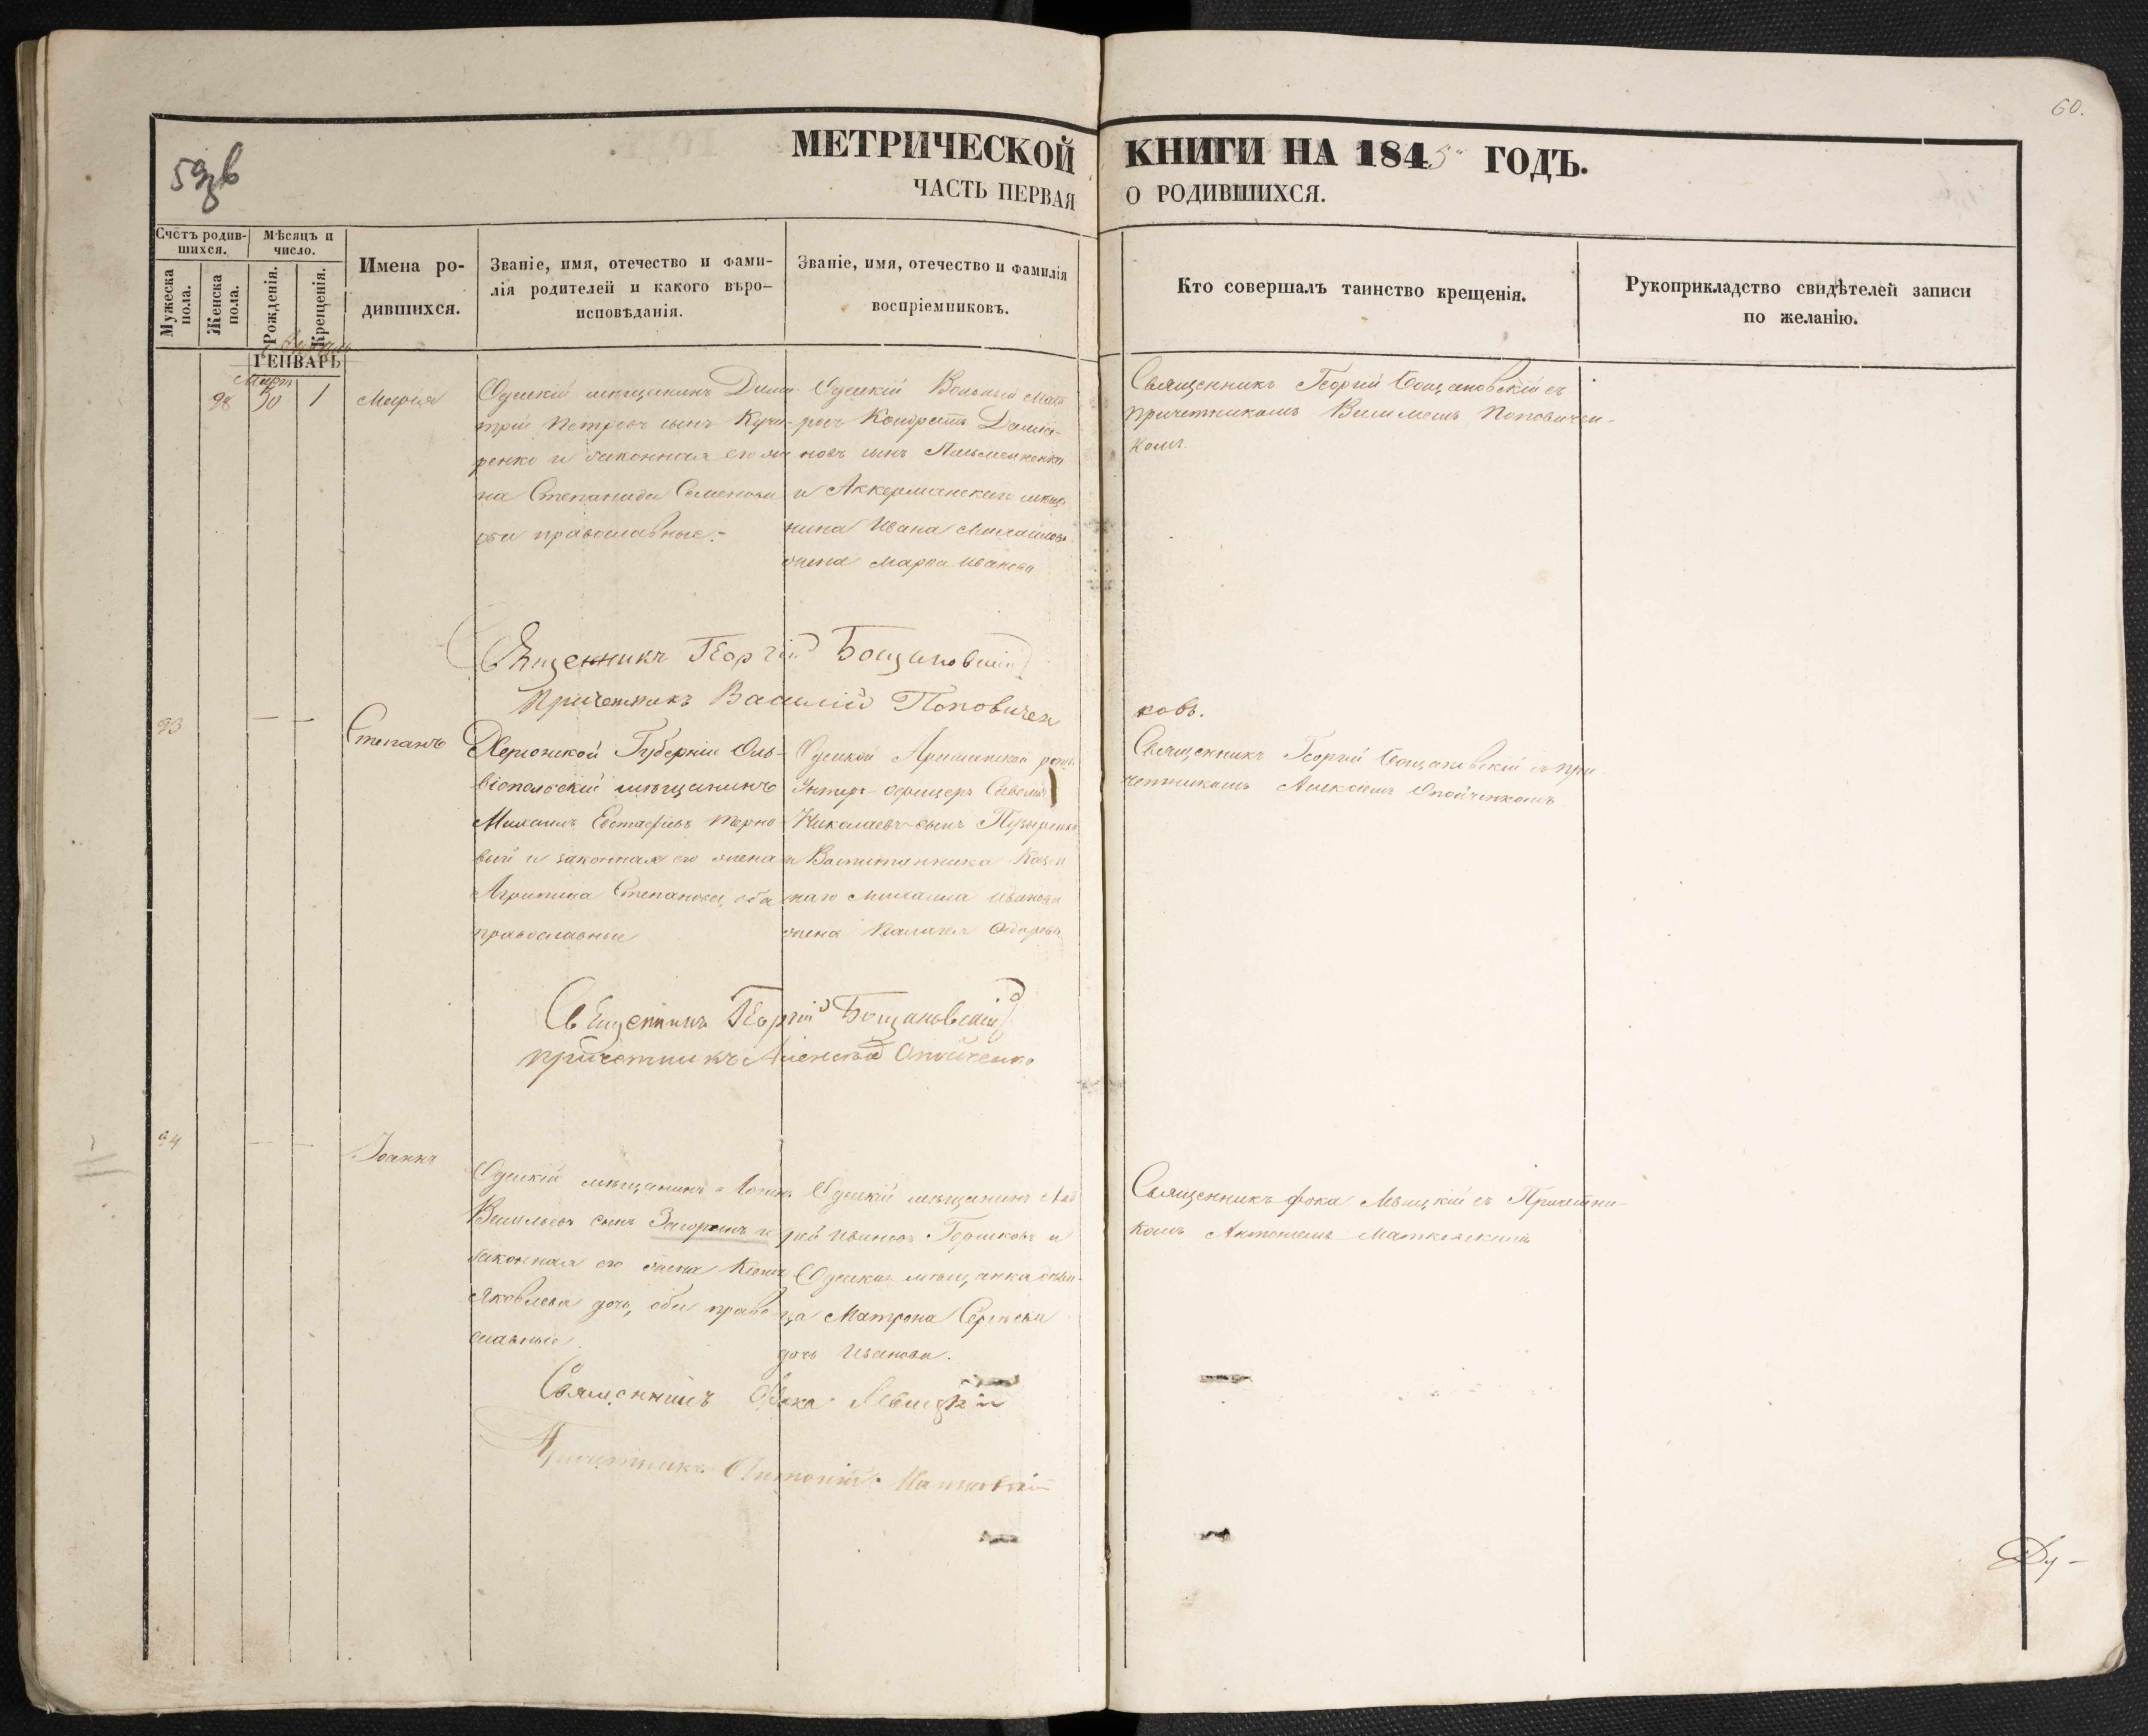 60.
59 зв
МЕТРИЧЕСКОЙ КНИГИ НА 1845 ГОДЪ.
ЧАСТЬ ПЕРВАЯ О РОДИВШИХСЯ.
Счетъ родив-
шихся.
Мѣсяцъ и
число.
Мужеска
пола.
Женска
пола.
Рожденія.
Крещенія.
Имена ро-
дившихся.
Званіе, имя, отечество и фами-
лія родителей и какого вѣро-
исповѣданія.
Званіе, имя, отечество и фамилія
воспріемниковъ.
Кто совершалъ таинство крещенія.
Рукоприкладство свидѣтелей записи
по желанію.
ГЕНВАРЬ
Март
98 30 1 Мария
Одескій мѣщанинъ Дими-
трій Петровъ сынъ Кучи-
ренко и законная его же-
на Степанида Семенова
оба православные.-
Одескій Вольный мат-
росъ Кондратъ Демья-
новъ сынъ
и Аккерманскаго мѣща-
нина Ивана Михайлова
жена Марѳа Иванова
Священникъ Георгій Бощановскій съ
причетникомъ Поповичен-
комъ.
Священникъ Георгій Бощановскій
Причетникъ Василій Поповичен
ковъ.
93 — — Степанъ
Херсонской Губерніи Оль-
віопольскій мѣщанинъ
Михаилъ Евстафіевъ Терно-
вый и законная его жена
Агрипина Степанова, оба
православные
Одеской роты
Унтеръ-офицеръ Савелій
Николаевъ сынъ
и Воспитанника Казен-
наго Михаила Иванова
жена Ѳедорова
Священникъ Георгій Бощановскій съ при-
четникомъ Алексѣемъ Опойченкомъ
Священникъ Георгій Бощановскій
причетникъ Алексѣй Опойченко
94 — — Іоаннъ
Одескій мѣщанинъ Логинъ
Васильевъ сынъ Загоринъ и
законная его жена Ксенія
Яковлева дочь, оба право-
славные
Одескій мѣщанинъ Анд-
рей Ивановъ Горшковъ и
Одеская мѣщанка дѣви-
ца Матрона Сергѣева
дочь Иванова.
Священникъ Фока Левицкій съ Причетни-
комъ Антоніемъ Матковскимъ
Священникъ Фока Левицкій
Причетникъ Антоній Матковскій
Ду-